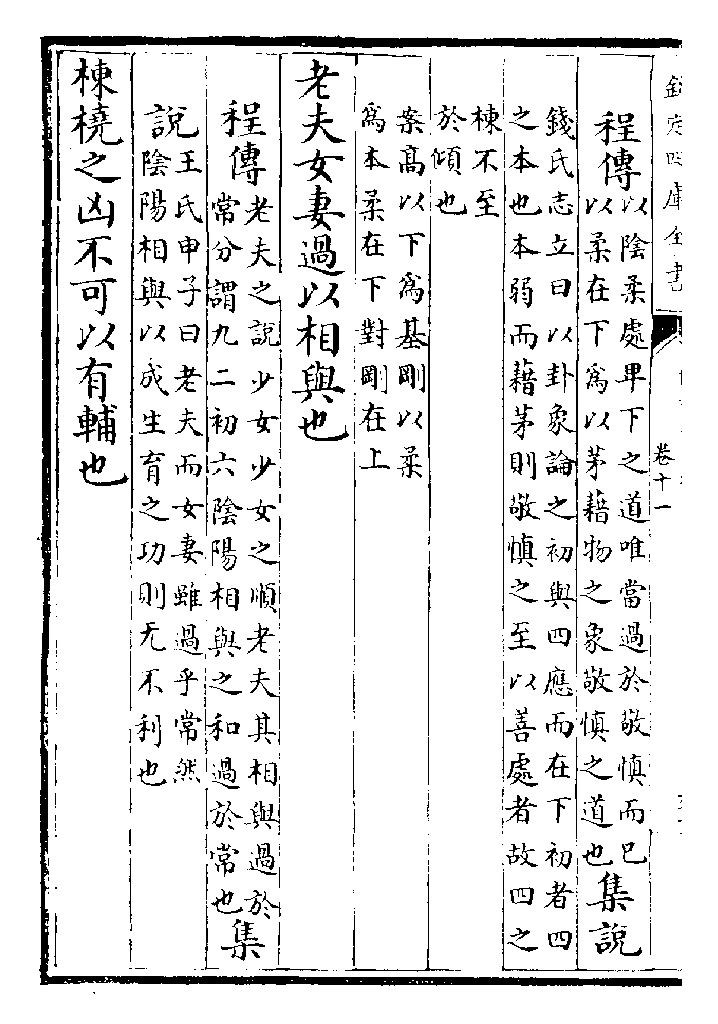 欽定四庫全書
卷十一
程傳以陰柔處畢下之道唯當過於敬慎而已
以柔在下為以茅藉物之象敬慎之道也集說
錢氏志立曰以卦象論之初與四應而在下初者四
之本也本弱而藉茅則敬慎之至以善處者故四之
棟不至
於傾也
案高以下為基剛以柔
為本柔在下對剛在上
老夫女妻過以相與也
程傳老夫之説少女少女之順老夫其相與過於
常分謂九二初六陰陽相與之和過於常也集
說王氏申子曰老夫而女妻雖過乎常然
陰陽相與以成生育之功則无不利也
棟橈之凶不可以有輔也